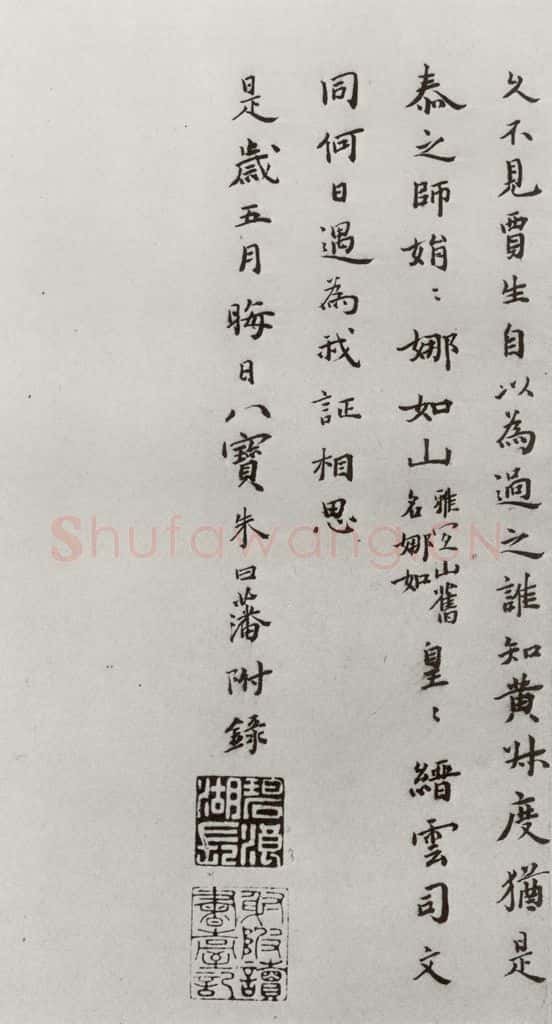 久不見賈生自以為過之誰知黃叔度猶是
泰之師娟〻娜如山
雅宜山舊
名娜如
皇〻縉雲司文
同何日遇為我証相思
是歲五月晦日八寶朱曰藩附錄
碧浪湖長
射陂讀書臺記
Shufawang.CN